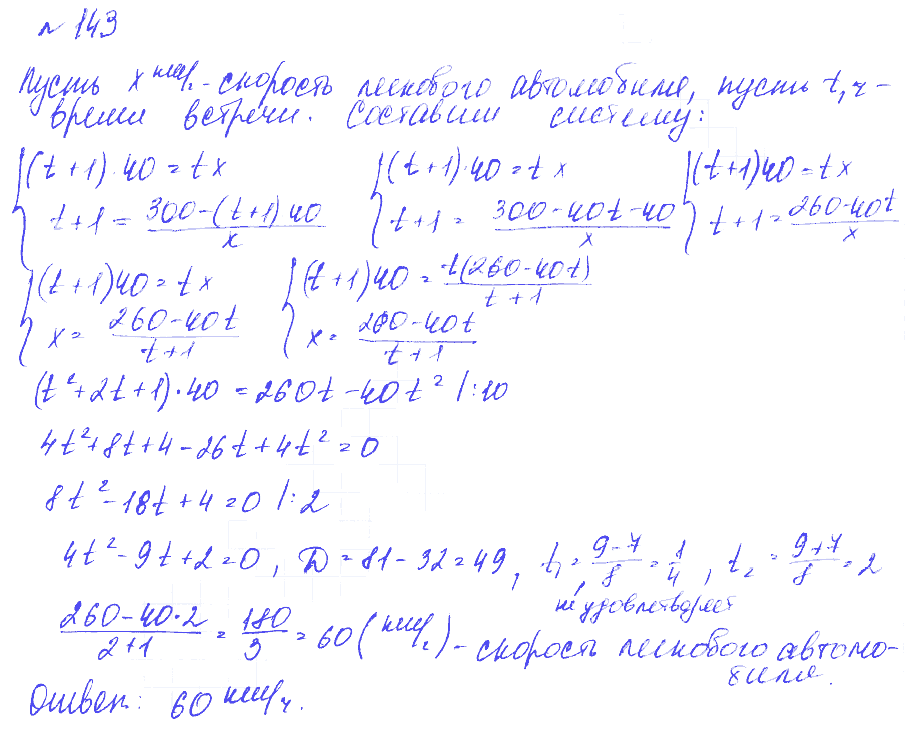 № 143
Пусть x км/ч - скорость легкового автомобиля, пусть t, ч -
время встречи. Составим систему:
{(t+1)·40 = tx {(t+1)·40 = tx {(t+1)40 = tx
t+1 = (300-(t+1)40)/x t+1 = (300-40t-40)/x t+1 = (260-40t)/x
{(t+1)40 = tx {(t+1)40 = t(260-40t)/(t+1)
x = (260-40t)/(t+1) x = (260-40t)/(t+1)
(t²+2t+1)·40 = 260t-40t² |:10
4t²+8t+4-26t+4t²=0
8t²-18t+4=0 |:2
4t²-9t+2=0, D=81-32=49, t₁=(9-7)/8=1/4, t₂=(9+7)/8=2
не удовлетворяет
(260-40·2)/(2+1) = 180/3 = 60 (км/ч) - скорость легкового автомо-
биля.
Ответ: 60 км/ч.